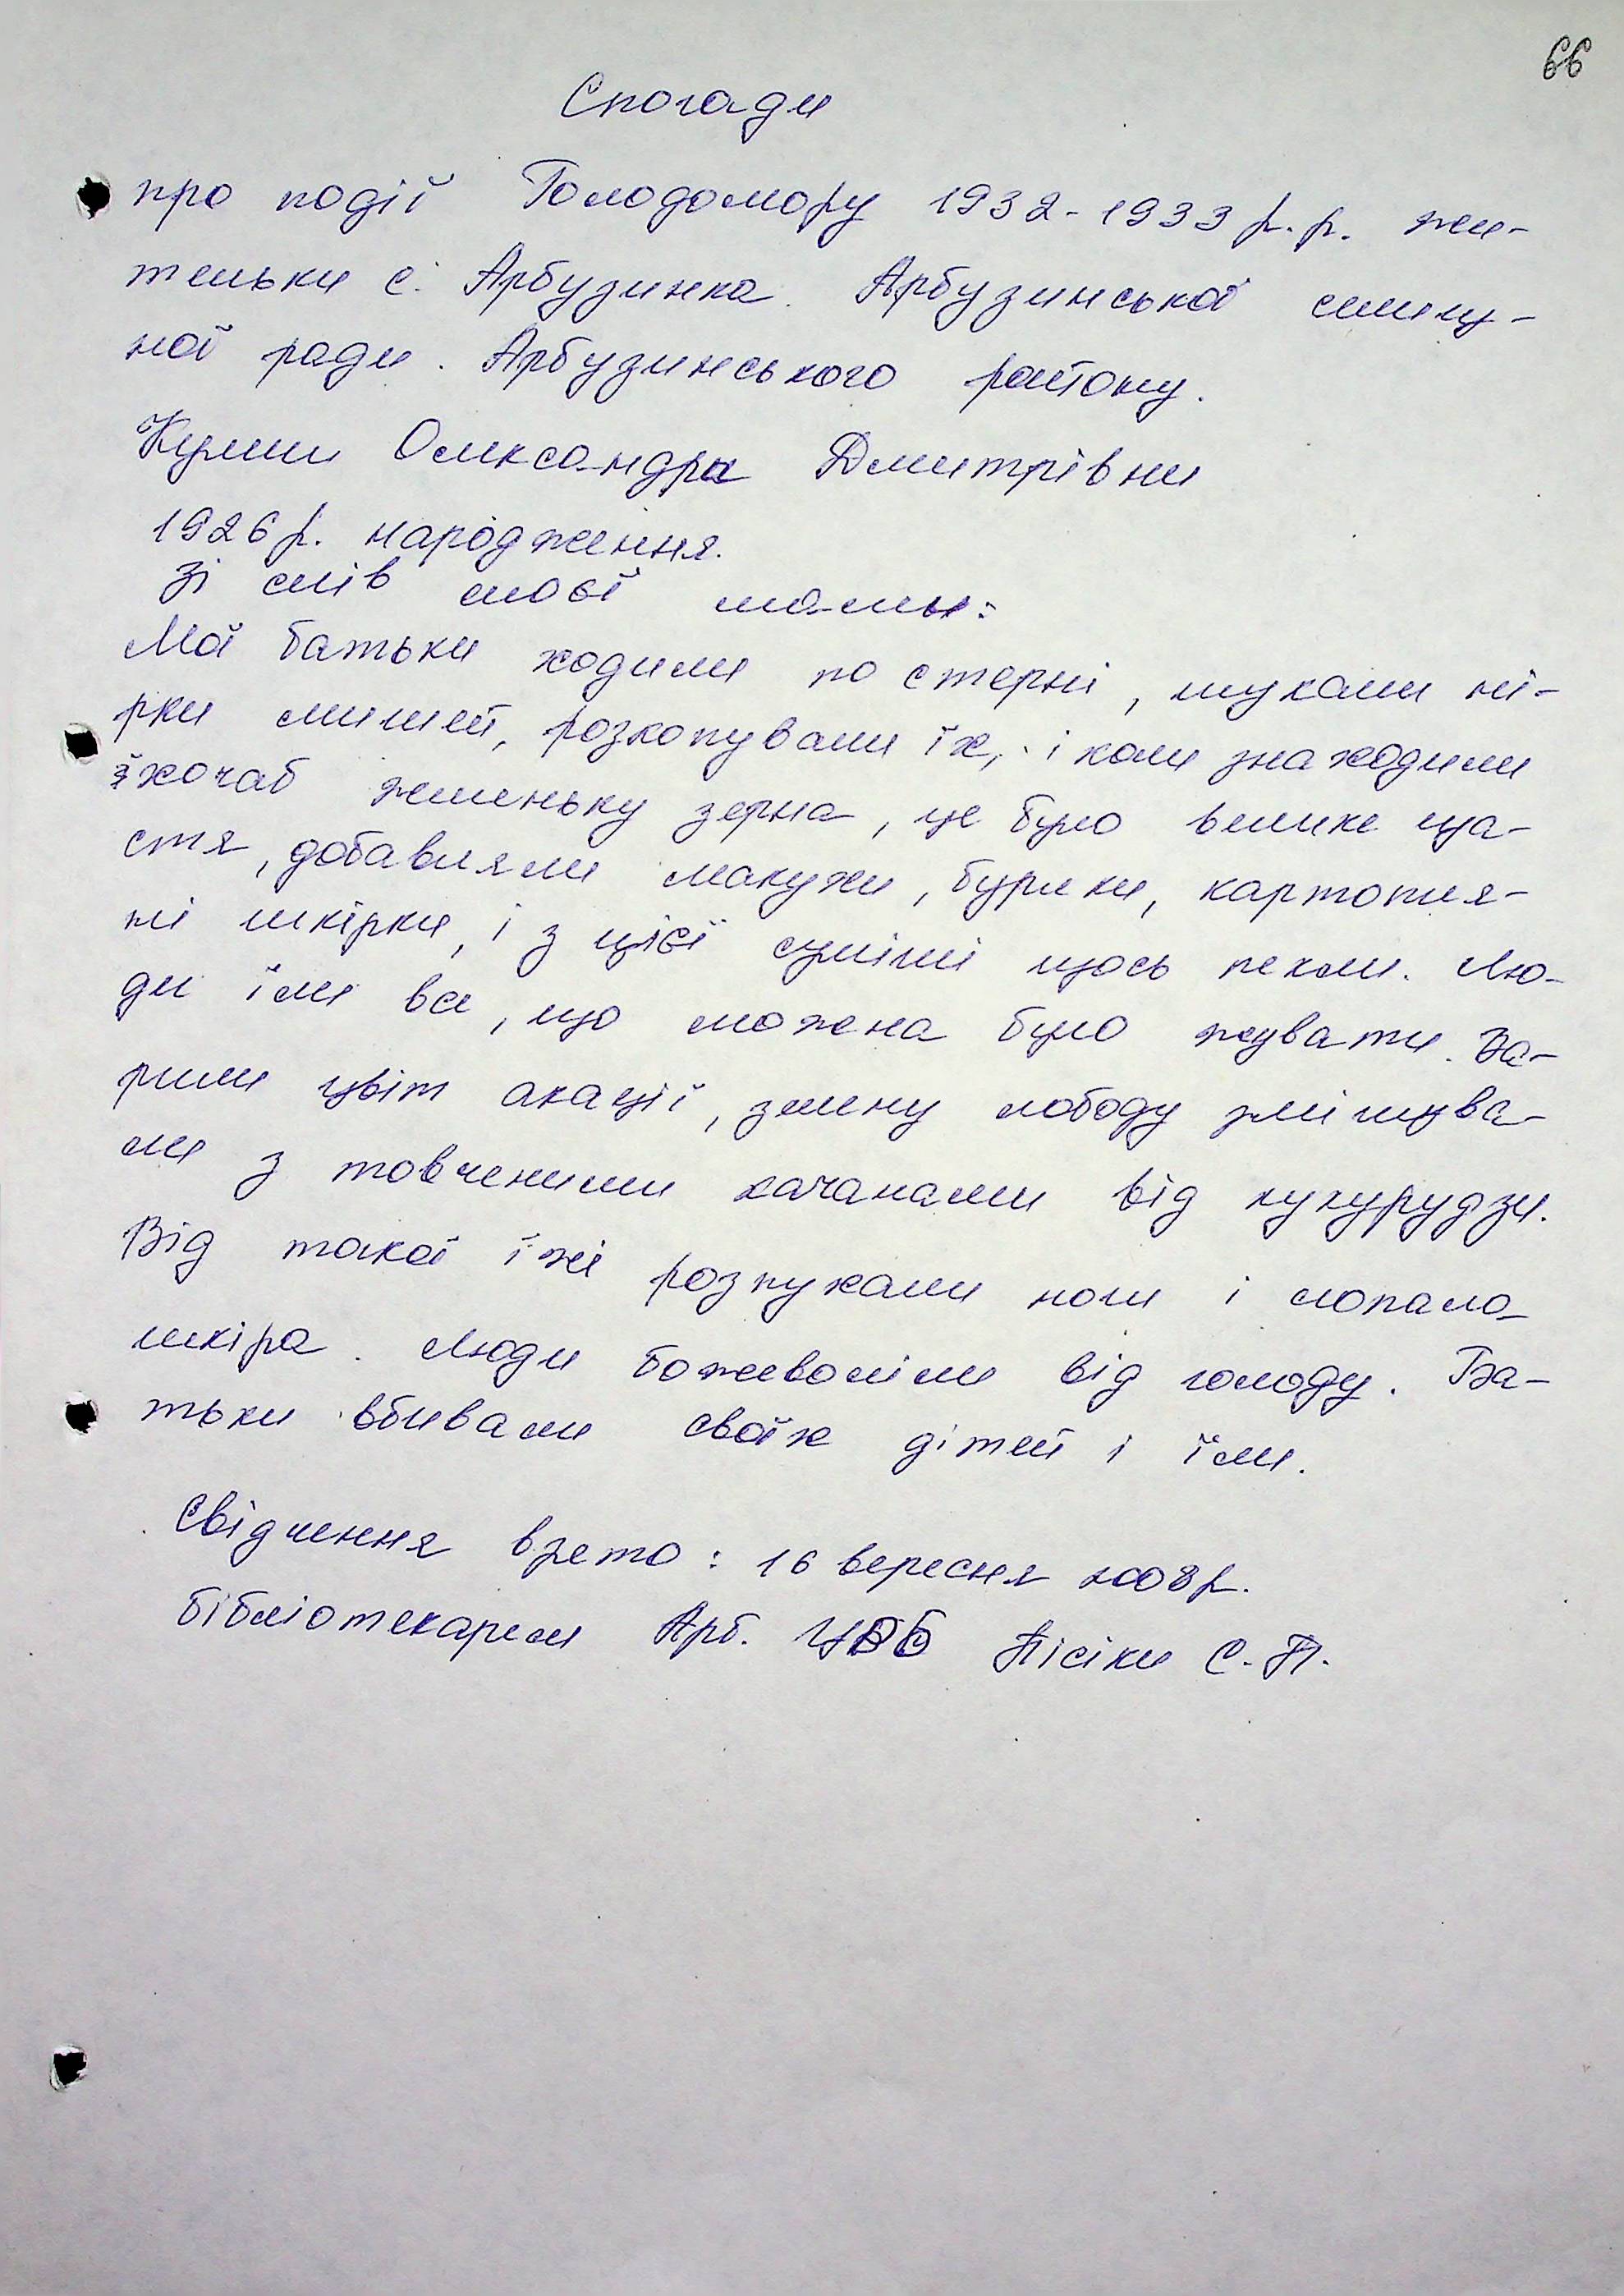 66
Спогади
про події Голодомору 1932-1933 р.р. жи-
тельки с. Арбузинка. Арбузинської селищ-
ної ради. Арбузинського району.
Олександра Дмитрівни
1926 р. народження.
Зі слів моєї мамы:
Мої батьки ходили по стерні, шукали ні-
рки мишей, розкопували їх, і коли знаходили
хочаб жменьку зерна, це було велике ща-
стя, добавляли макухи, буряки, картопля-
ні шкірки, і з цієї суміші щось пекли. Лю-
ди їли все, що можна було жувати. Ва-
рили цвіт акації, зелену лободу змішува-
ли з товченими качанами від кукурудзи.
Від такої їжі розпухали ноги і лопала
шкіра. Люди божеволіли від голоду. Ба-
тьки вбивали своїх дітей і їли.
Свідчення взято: 16 вересня 2008 р.
бібліотекарем Арб. Пісіки С.П.